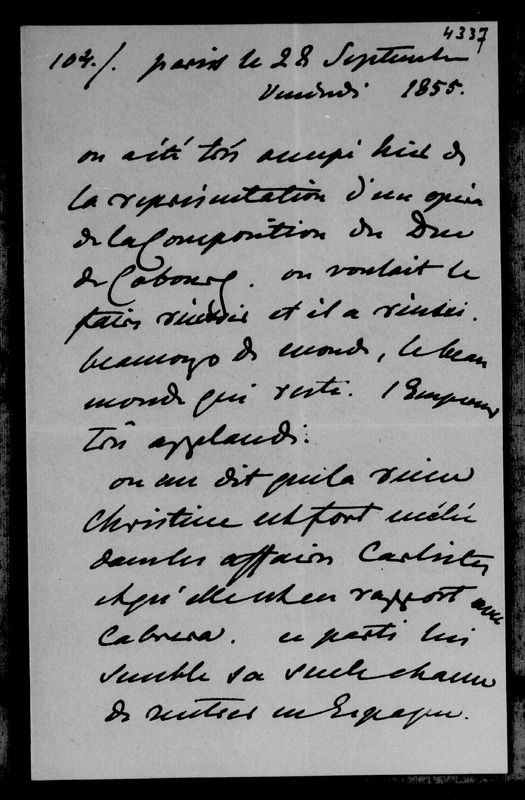 4337
104./. paris le 28 Septembre
Vendredi 1855.
on a été très occupé hier de
la représentation d'un opéra
de la Composition du Duc
de Cobourg. on voulait le
faire réussir et il a réussi.
beaucoup de monde, le beau
monde qui reste. l'Empereur
très applaudi.
on me dit que la reine
Christine est fort mélée
dans les affaires Carlistes
et qu'elle est en rapport avec
Cabrera. ce parti lui
semble sa seule chance
de rentrer en Espagne.